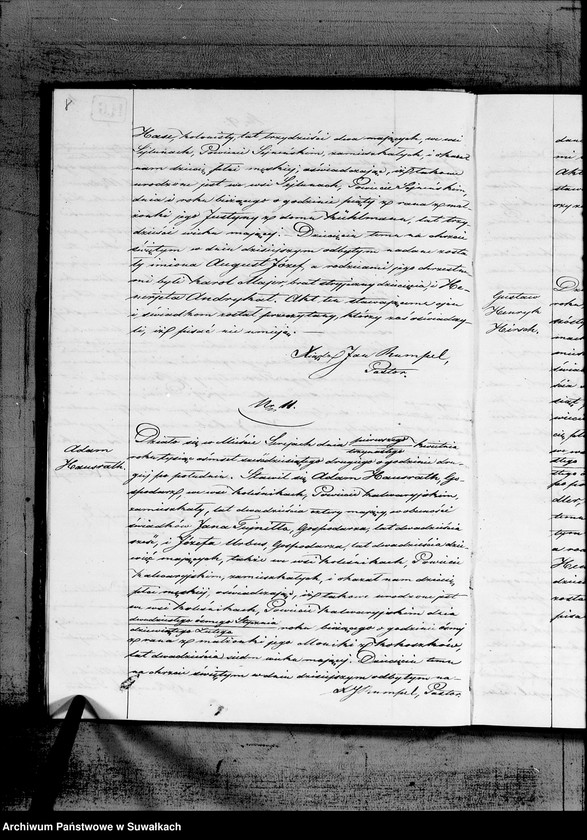 8
Hase, kolonisty, lat trzydzieści dwa mających, we wsi
Sejwach, Powiecie Sejneńskim, zamieszkałych, i okazał
nam dziecię płci męzkiej, oświadczając, iż takowe
urodzone jest we wsi Sejwach, Powiecie Sejneńskim,
dnia i roku bieżącego o godzinie piątej z rana z mał
żonki jego Justyny z domu lat trzy
dzieści wieku mającej. Dziecięciu temu na chrzcie
świętym w dniu dzisiejszym odbytym nadane zosta
ły imiona August Józef, a rodzicami jego chrzestne
mi byli Karol Majer, brat stryjeczny dziecięcia i He
nrieta Andrykat. Akt ten stawającemu ojcu
i świadkom został przeczytany, którzy nas oświadczy
li, iż pisać nie umieją. —
Xiądz Jan Rumpel,
Pastor.
No. 11.
Adam
Hausrath.
Działo się w Mieście Serejach dnia pierwszego / trzynastego kwietnia
roku tysiąc ośmset ośmdziesiątego drugiego o godzinie dru
giej po południu. Stawił się Adam Hausrath, Go
spodarz, we wsi Kolśnikach, Powiecie kalwaryjskim,
zamieszkały, lat dwadzieścia cztery mający w obecności
świadków Jana Gospodarza, lat dwadzieścia
sześć, i Józefa Urbus, Gospodarza, lat dwadzieścia dzie
więć mających, także we wsi Kolśnikach, Powiecie
kalwaryjskim, zamieszkałych, i okazał nam dziecię
płci męzkiej, oświadczając, iż takowe urodzone jest
we wsi Kolśnikach, Powiecie kalwaryjskim dnia
dwudziestego ósmego Stycznia / dziewiątego Lutego roku bieżącego o godzinie ósmej
z rana z małżonki jego Moniki z Kokoszków
lat dwadzieścia siedm wieku mającej. Dziecięciu temu
na chrzcie świętym w dniu dzisiejszym odbytym na-
X J Rumpel, Pastor.
Gustaw
Henryk
Hirsch.
Archiwum Państwowe w Suwałkach